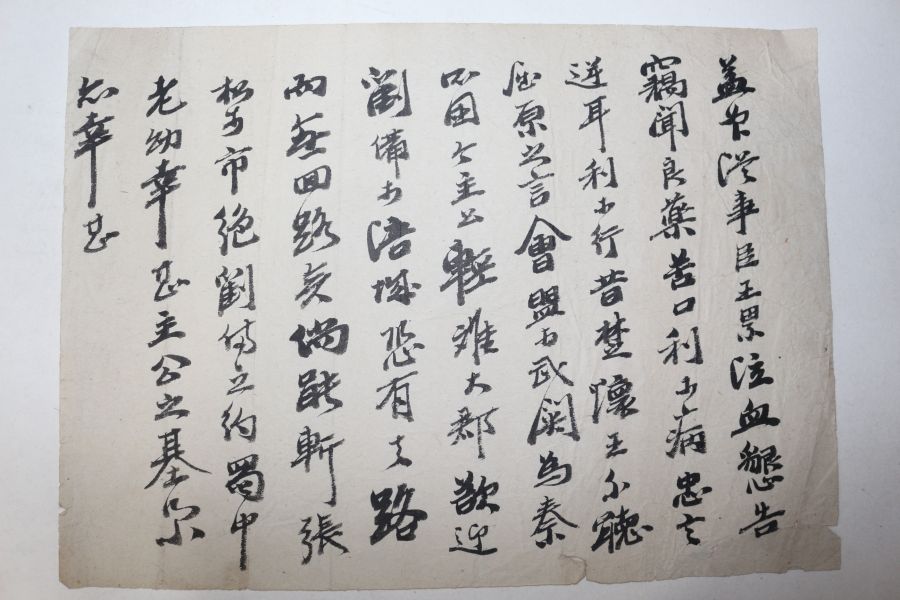 益州從事臣王累泣血懇告
竊聞良藥苦口利于病忠言
逆耳利于行昔楚懷王不聽
屈原之言會盟于武關為秦
所困今主公輕離大郡欲迎
劉備于涪城恐有去路
而無回路矣倘能斬張
松于市絕劉備之約蜀中
老幼幸甚主公之基業
亦幸甚